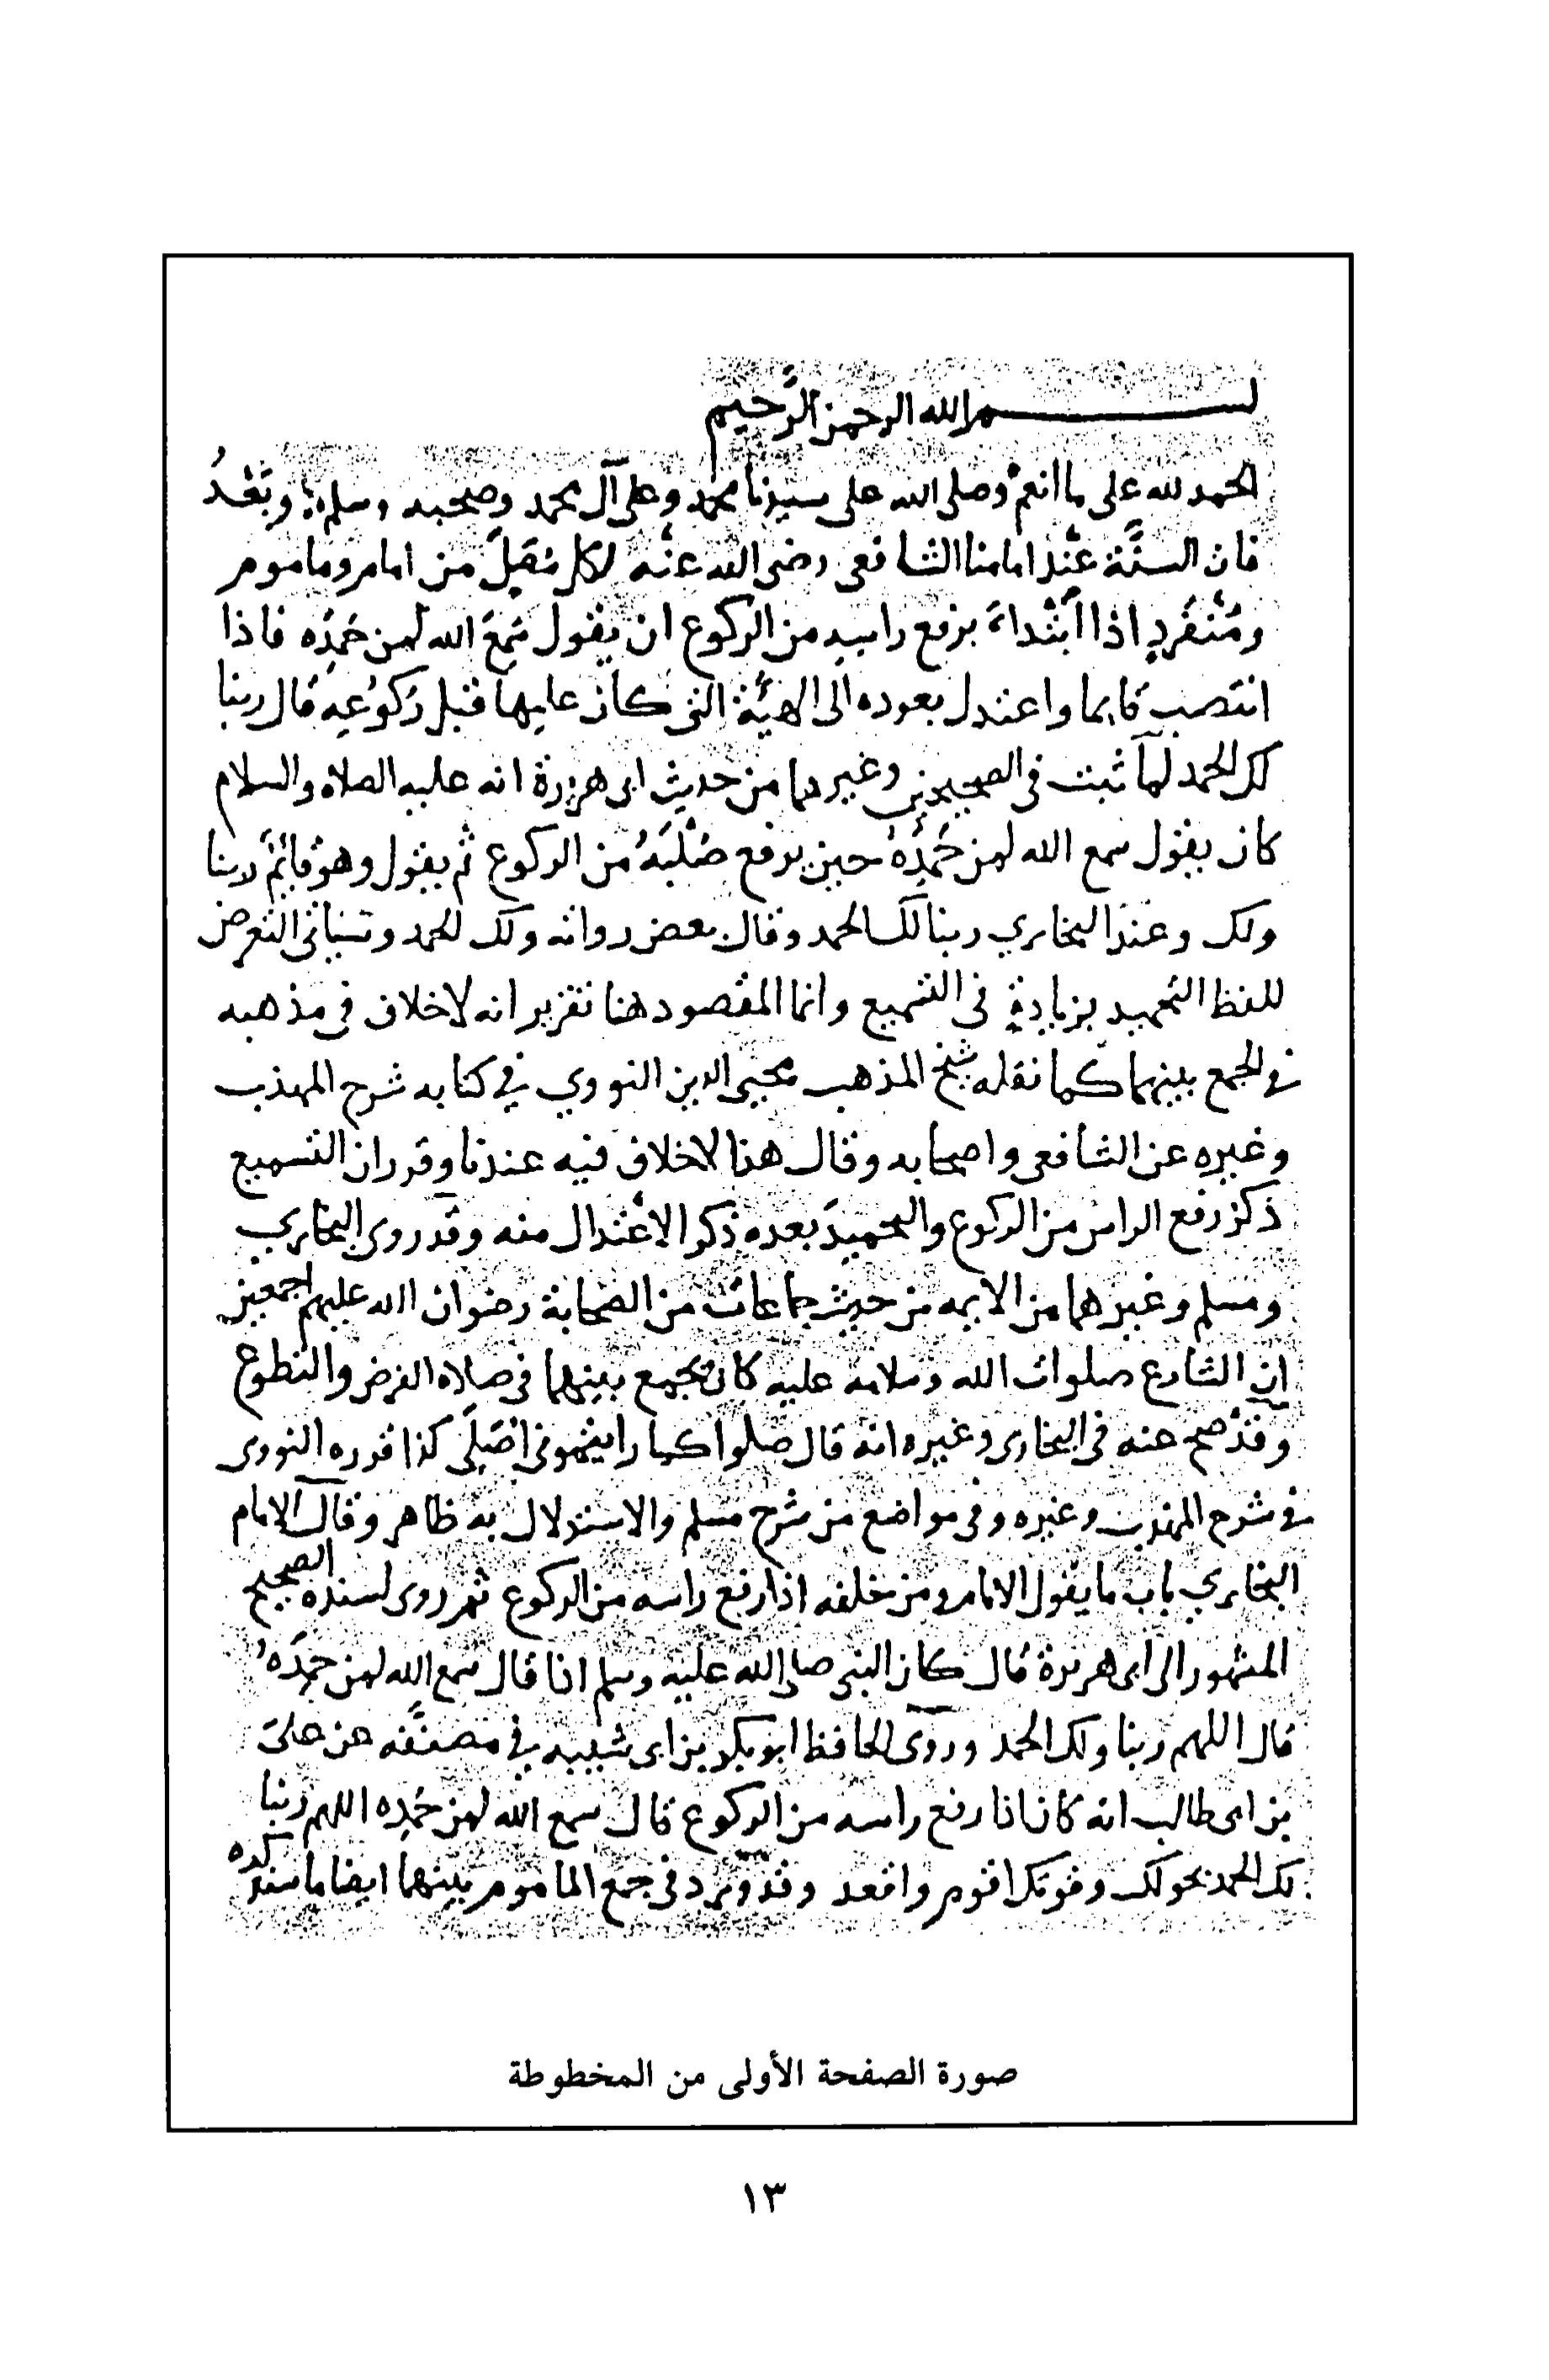 بسم الله الرحمن الرَّحيم
الحمد لله على ما انعم وصلى الله على سيدنا محمد وعلى آل محمد وصحبه وسلم وبَعْدُ
فان السنَّة عِنْد امامنا الشافعى رضى الله عنْه لكل مُصَلٍّ من امام وماموم
ومُنْفَرِدٍ اذا ابْتدَاءَ برفع راسه من الركوع ان يقول سَمِعَ الله لمن حَمِدَه فاذا
انتصب قايما واعتدل بعوده الى الهيْئة التى كان عليها قبل رُكوُعِهِ قال ربنا
لك الحمد لما ثبت فى الصحيحين وغيرهما من حديث ابى هريرة انه عليه الصلاه والسلام
كان يقول سمع الله لمن حَمِدَهُ حين يرفع صُلْبَهُ من الركوع ثم يقول وهو قائمٌ ربنا
ولك وعند البخاري ربنا لك الحمد وقال بعض رواته ولك الحمد وسياتى التعرض
للفظ التحميد بزيادةٍ فى التسميع وانما المقصود هنا تقرير انه لا خلاف فى مذهبه
فى الجمع بينهما كما نقله شيخ المذهب محيى الدين النووي في كتابه شرح المهذب
وغيره عن الشافعى واصحابه وقال هذا لا خلاف فيه عندنا وقرر ان التسميع
ذكر رفع الراس من الركوع والتحميدَ بعده ذكر الاعْتدال منه وقد روى البخاري
ومسلم وغيرهما من الايمه من حديث جماعات من الصحابة رضوان الله عليهم اجمعين
ان الشارع صلوات الله وسلامه عليه كان يجمع بينهما فى صلاه الفرض والتطوع
وقد صح عنه فى البخارى وغيره انه قال صلوا كما رايتمونى اصَلِّى كذا قرره النووى
فى شرح المهذب وغيره وفى مواضع من شرح مسلم والاستدلال به ظاهر وقال الامام
البخاري باب ما يقول الامام ومن خلفه اذا رفع راسه من الركوع ثم روى بسنده الصحيح
المشهور الى ابى هريرة قال كان النبى صلى الله عليه وسلم اذا قال سمع الله لمن حمِدَه
قال اللهم ربنا ولك الحمد وروى الحافظ ابو بكر بن ابى شيبه في مصنَّفه عن على
بن ابى طالب انه كان اذا رفع راسه من الركوع قال سمع الله لمن حَمِدَه اللهم ربنا
لك الحمد بحولك وقوتك اقوم واقعد وقد ورد فى جمع الماموم بينهما ايضا ما سنذكره
صورة الصفحة الأولى من المخطوطة
١٣